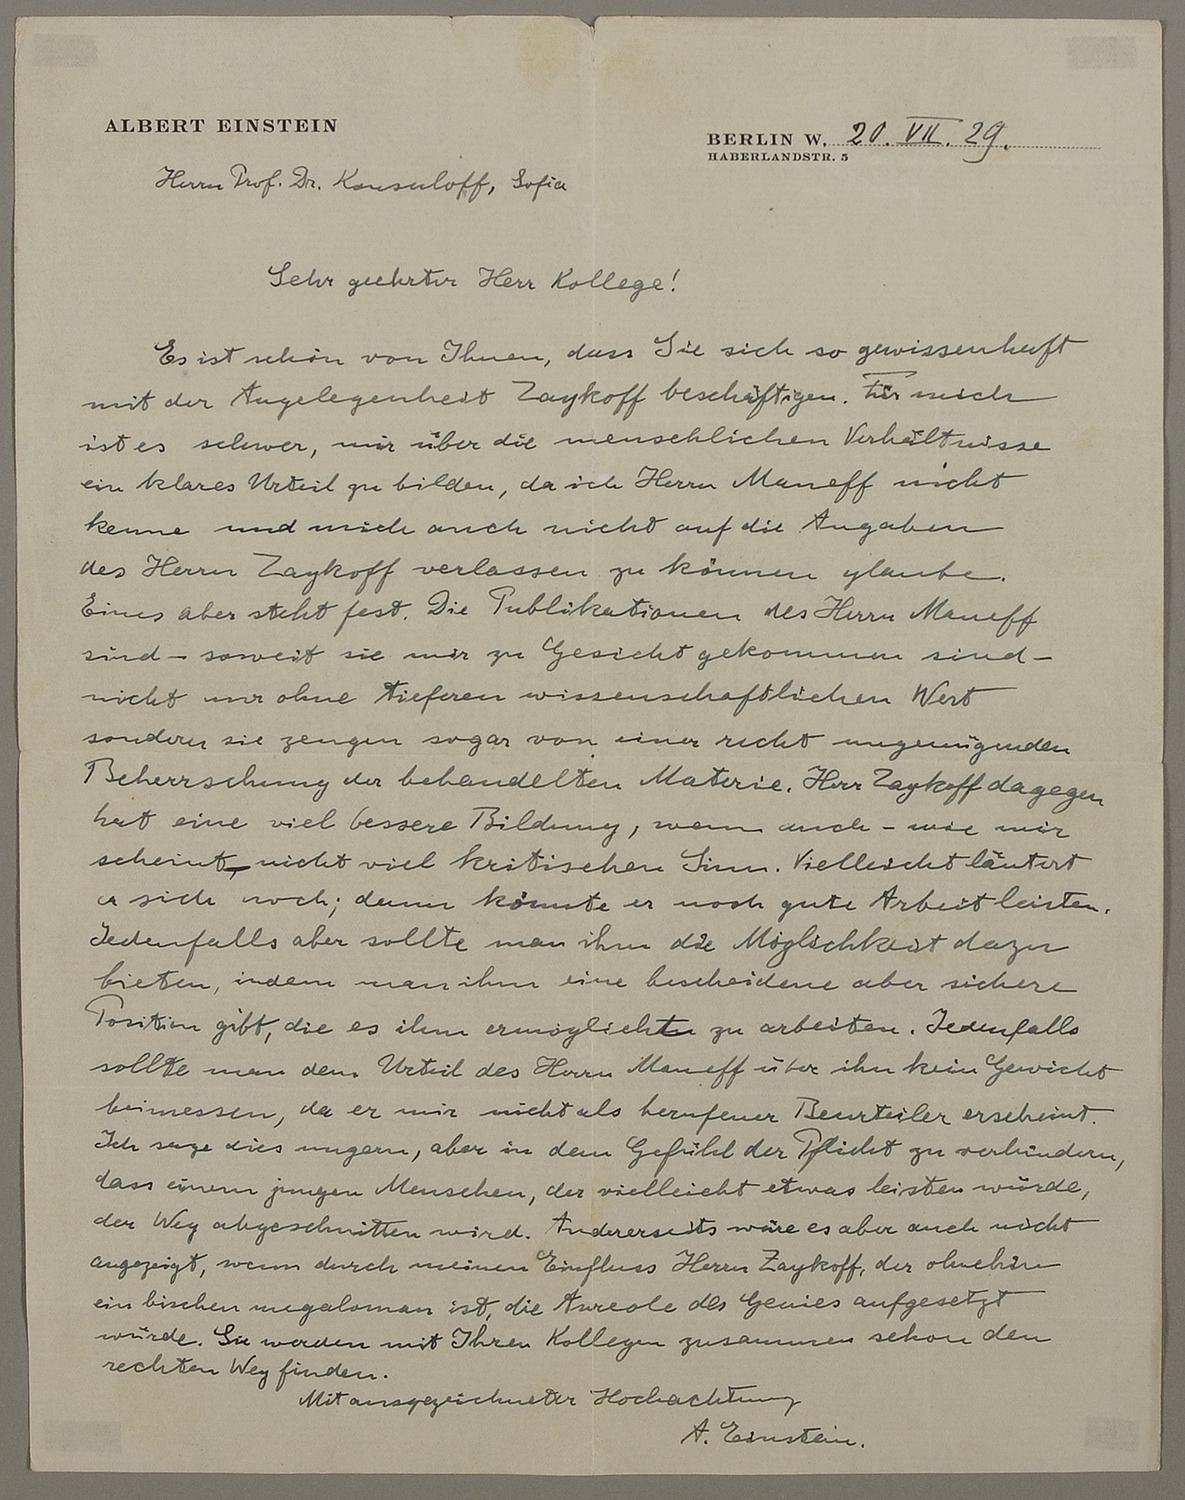 ALBERT EINSTEIN
BERLIN W. 20. VII. 29.
HABERLANDSTR. 5
Herrn Prof. Dr. Konsuloff, Sofia
Sehr geehrter Herr Kollege!
Es ist schön von Ihnen, dass Sie sich so gewissenhaft
mit der Angelegenheit Zaykoff beschäftigen. Für mich
ist es schwer, mir über die menschlichen Verhältnisse
ein klares Urteil zu bilden, da ich Herrn Maneff nicht
kenne und mich auch nicht auf die Angaben
des Herrn Zaykoff verlassen zu können glaube.
Eines aber steht fest. Die Publikationen des Herrn Maneff
sind – soweit sie mir zu Gesicht gekommen sind –
nicht nur ohne tieferen wissenschaftlichen Wert
sondern sie zeugen sogar von einer recht ungenügenden
Beherrschung der behandelten Materie. Herr Zaykoff dagegen
hat eine viel bessere Bildung, wenn auch – wie mir
scheint – nicht viel kritischen Sinn. Vielleicht läutert
er sich noch; dann könnte er noch gute Arbeit leisten.
Jedenfalls aber sollte man ihm die Möglichkeit dazu
bieten, indem man ihm eine bescheidene aber sichere
Position gibt, die es ihm ermöglichte zu arbeiten. Jedenfalls
sollte man dem Urteil des Herrn Maneff über ihn kein Gewicht
beimessen, da er mir nicht als berufener Beurteiler erscheint.
Ich sage dies ungern, aber in dem Gefühl der Pflicht zu verhindern,
dass einem jungen Menschen, der vielleicht etwas leisten würde,
der Weg abgeschnitten wird. Andererseits wäre es aber auch nicht
angezeigt, wenn durch meinen Einfluss Herrn Zaykoff, der ohnehin
ein bischen megaloman ist, die Aureole des Genies aufgesetzt
würde. Sie werden mit Ihren Kollegen zusammen schon den
rechten Weg finden.
Mit ausgezeichneter Hochachtung
A. Einstein.